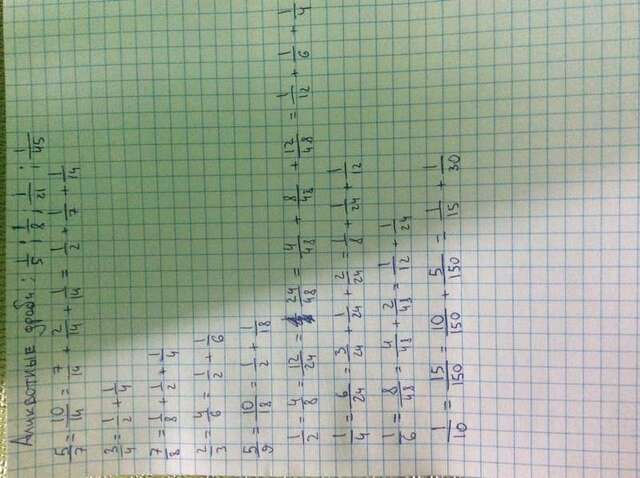 Аликвотные дроби: 1/5; 1/8; 1/21; 1/45
5/7 = 10/14 = 7/14 + 2/14 + 1/14 = 1/2 + 1/7 + 1/14
3/4 = 1/2 + 1/4
7/8 = 1/8 + 1/2 + 1/4
2/3 = 4/6 = 1/2 + 1/6
5/9 = 10/18 = 1/2 + 1/18
1/2 = 4/8 = 12/24 = 24/48 = 4/48 + 8/48 + 12/48 = 1/12 + 1/6 + 1/4
1/4 = 6/24 = 3/24 + 1/24 + 2/24 = 1/8 + 1/24 + 1/12
1/6 = 8/48 = 4/48 + 2/48 = 1/12 + 1/24
1/10 = 15/150 = 10/150 + 5/150 = 1/15 + 1/30